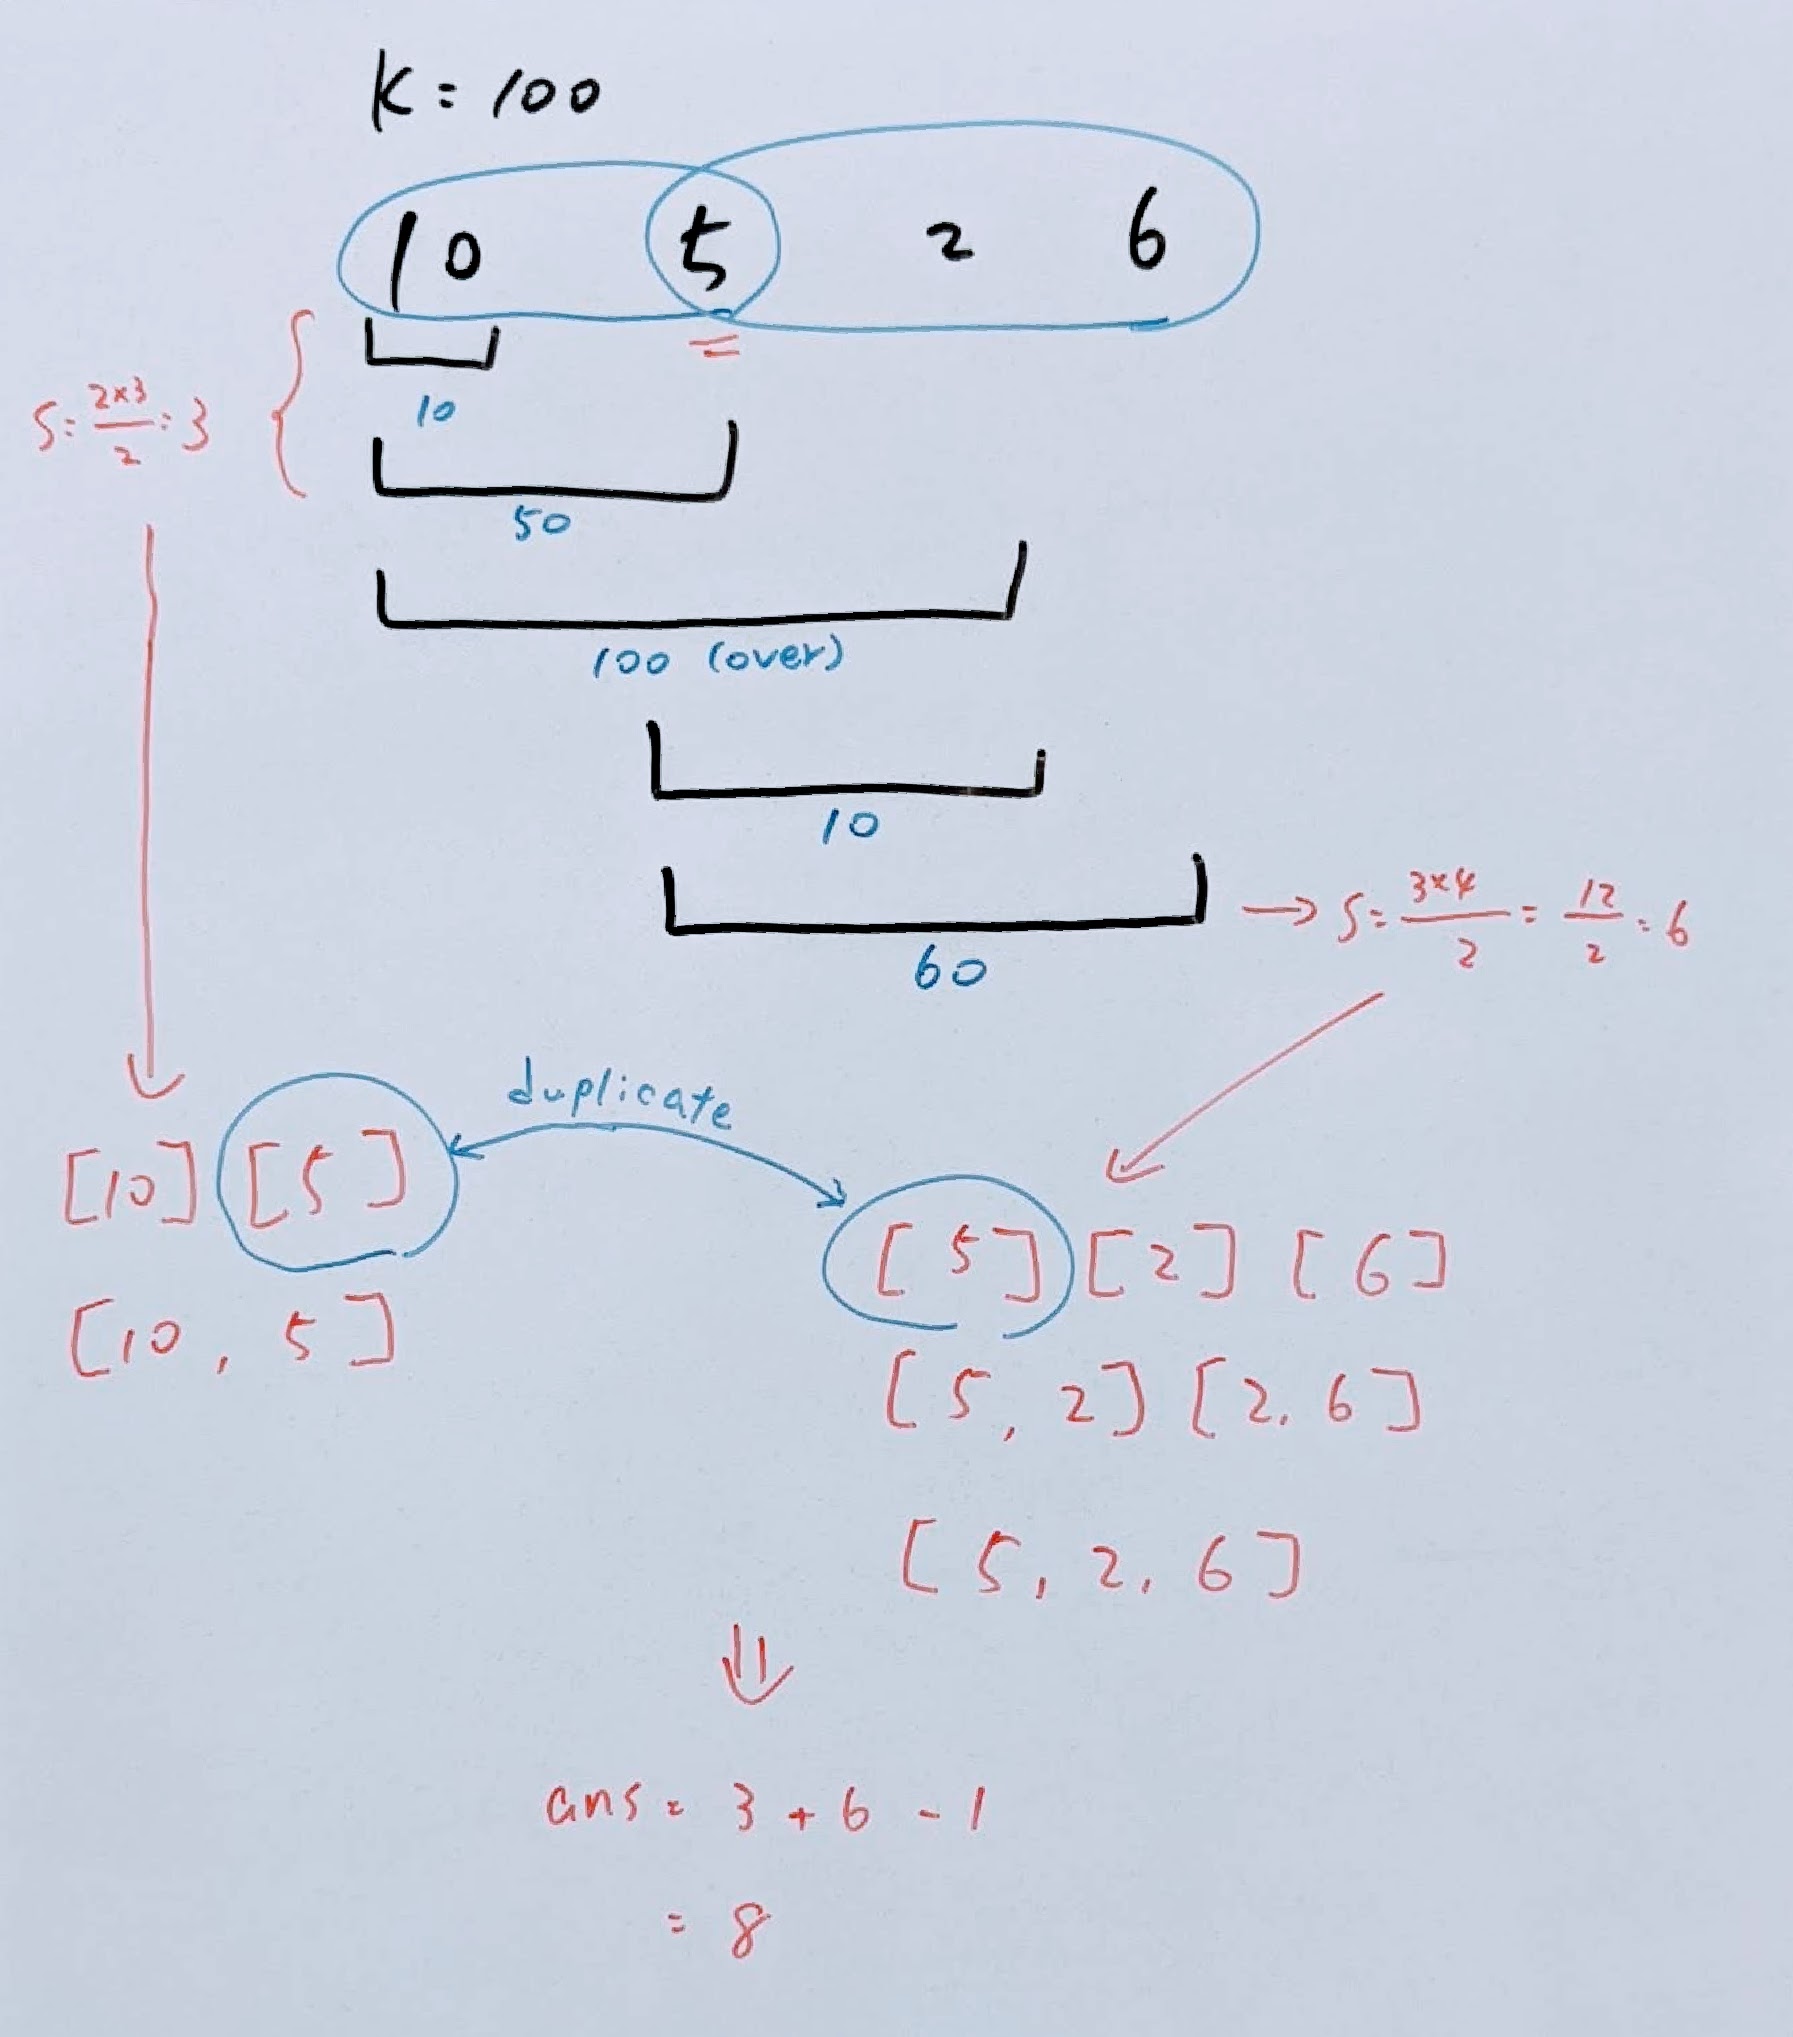 K = 100
10 5 2 6
10
S = 2×3/2 = 3
50
100 (over)
10
60
→ S = 3×4/2 = 12/2 = 6
duplicate
[10] [5]
[10, 5]
[5] [2] [6]
[5, 2] [2, 6]
[5, 2, 6]
ans = 3 + 6 - 1
= 8